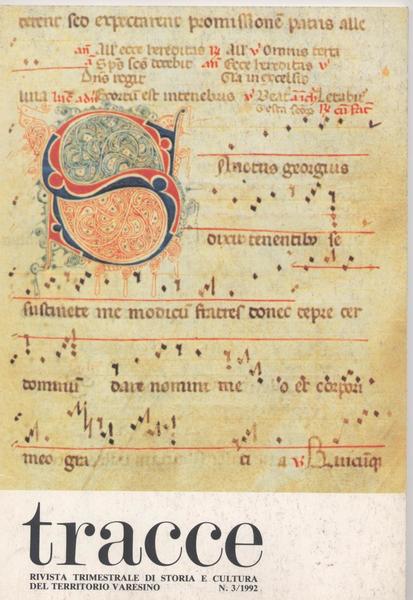 sed expectarent promissionē patris
All' ecce hereditas All' v Omnis terra
Sp̄s sc̄s docebit añ Ecce hereditas v
Dn̄s regit Gl̄a in excelsis
Exortū est in tenebris v Beat
Sanctus georgius
dixit tenentibꝰ se
sustinete me modicū fratres donec
domin̄ dare nomini me o et corpori
meo gra ci a v
tracce
RIVISTA TRIMESTRALE DI STORIA E CULTURA
DEL TERRITORIO VARESINO N. 3/1992